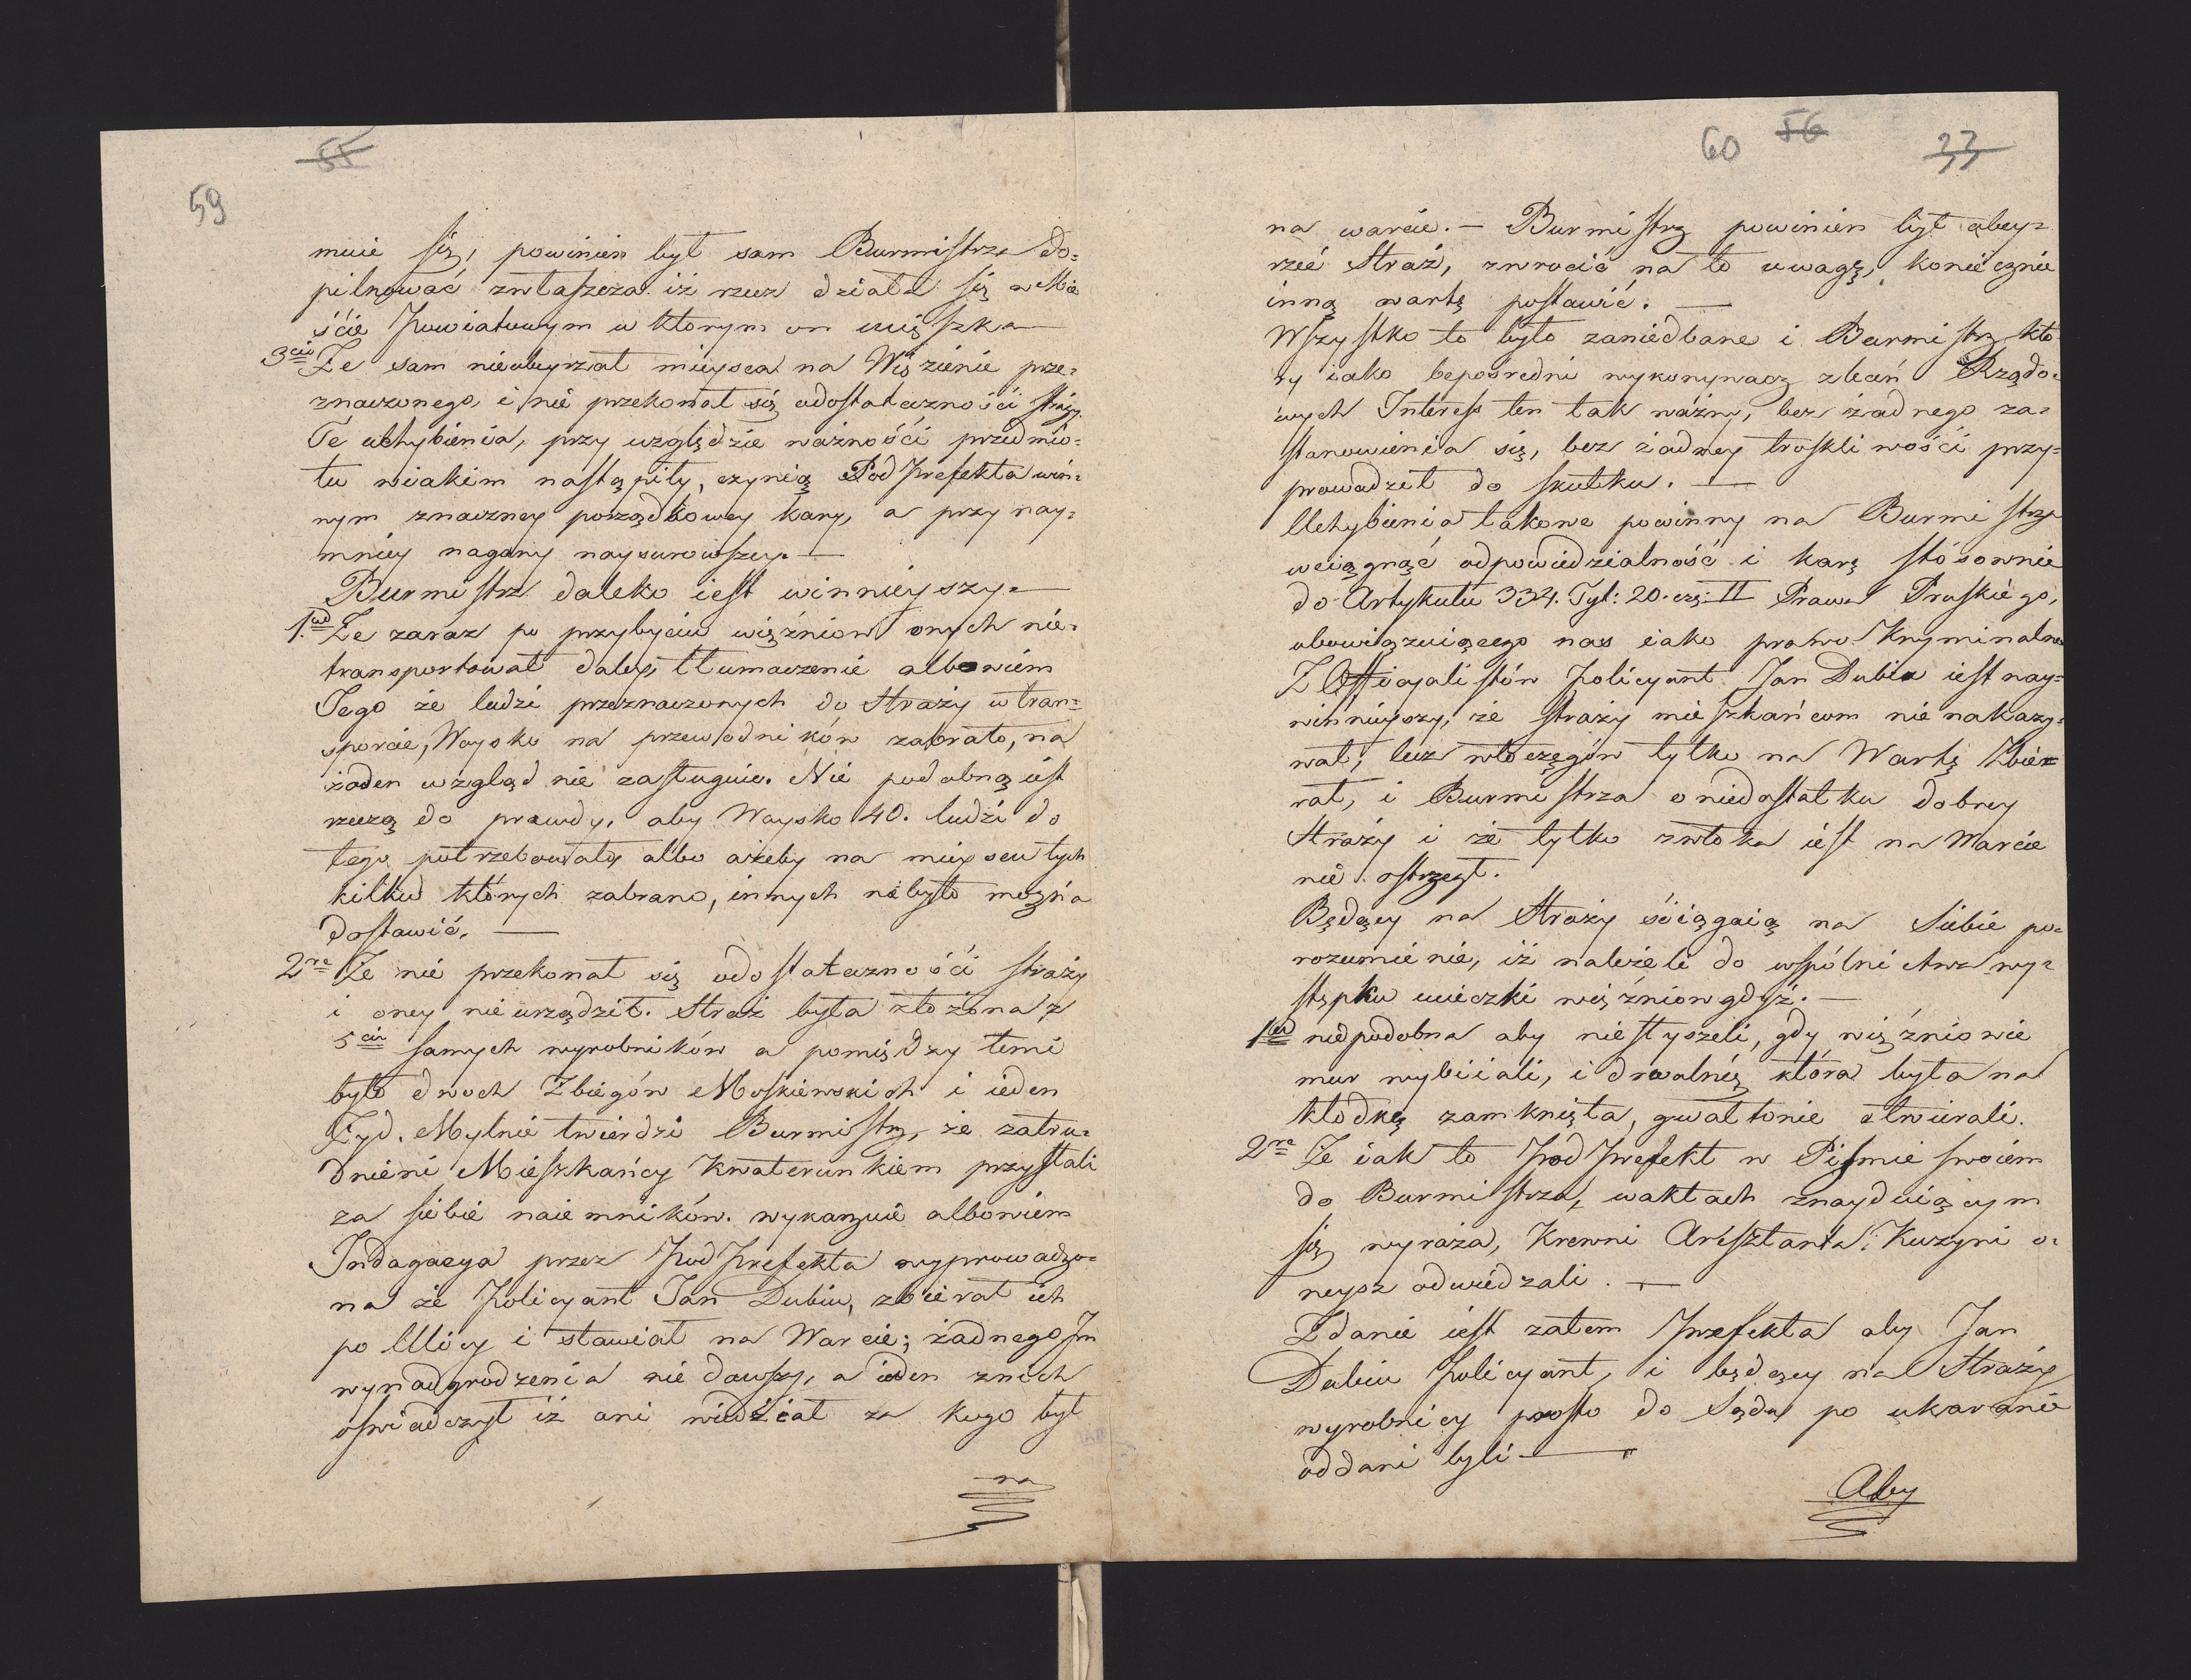 55
59
muie się, powinien był sam Burmistrz do=
pilnować zwłaszcza iż rzecz działa się w Mie
ście Powiatowym w ktorym on mięszka
3cio Ze sam nieobeyrzał mieysca na Więzienie prze=
znaczonego, i nie przekonał się odostateczności straży.
Te uchybienia, przy względzie ważności przedmio=
tu wiakim nastąpiły, czynią PodPrefekta win=
nym znaczney porządkowey kary, a przy nay=
mniey nagany naysurowszey. —
Burmistrz daleko iest winnieyszy. —
1mo Ze zaraz po przybyciu więźniow onych nie=
transportował daley, tłumaczenie albowiem
Tego że ludzi przeznaczonych do Straży w tran=
sporcie, Woysko na przewodników zabrało, na
żaden wzgląd nie zasługuie. Nie podobną iest
rzeczą do prawdy, aby Woysko 40. ludzi do
tego potrzebowało, albo ażeby na mieyscu tych
kilku których zabrano, innych niebyło można
dostawić. —
2re Ze nie przekonał się odostateczności straży
i oney nieurządził. Straż była złożona z
5ciu samych wyrobników a pomiędzy temi
było dwoch Zbiegów Moskiewskich i ieden
Żyd. Mylnie twierdzi Burmistrz, że zatru=
dnieni Mieszkańcy Kwaterunkiem przystali
za siebie naiemników. wykazuie albowiem
Indagacya przez PodPrefekta wyprowadzo=
na że Policyant Jan Dubiu, zbierał ich
po Ulicy i stawiał na Warcie; żadnego Jm
wynadgrodzenia nie dawszy, a ieden znich
oświadczył iż ani wiedział za kogo był
na
60 56 33
na warcie. — Burmistrz powinien był obey=
rzeć Straż, zwrocić na to uwagę, koniecznie
inną wartę postawić. —
Wszystko to było zaniedbane i Burmistrz kto=
ry iako bepośredni wykonywacz zleceń Rządo=
wych Interess ten tak ważny, bez żadnego za=
stanowienia się, bez żadney troskliwości przy=
prowadził do skutku. —
Uchybienia takowe powinny na Burmistrza
wciągnąć odpowiedzialność i karę stósownie
do Artykułu 334. Tyt: 20. czę: II Prawa Pruskiego,
obowiązuiącego nas iako prawo Kryminalne
Z Officyalistów Policyant Jan Dubiu iest nay=
winnieyszy, że straży mieszkańcom nie nakazy=
wał, lecz włoczęgów tylko na Wartę Zbie=
rał, i Burmistrza o niedostatku dobrey
Straży i że tylko zwłoka iest na Warcie
nie ostrzegł.
Będący na Straży ściągaią na Siebie po=
rozumienie, iż należeli do wspólnictwa wy=
stępku ucieczki więźniow gdyż. —
1mo niepodobna aby niesłyszeli, gdy więźniowie
mur wybiiali, i drwalnię która była na
kłodkę zamknięta, gwałtonie otwierali.
2re Ze iak to PodPrefekt w Pismie swoiem
do Burmistrza, waktach znayduiącym
się wyraża, Krewni Aresztanta: Kuzyni o=
neysz odwiedzali. —
Zdanie iest zatem Prefekta aby Jan
Dubiu Policyant, i będący na Straży
wyrobnicy prosto do Sądu po ukaranie
oddani byli —
Aby